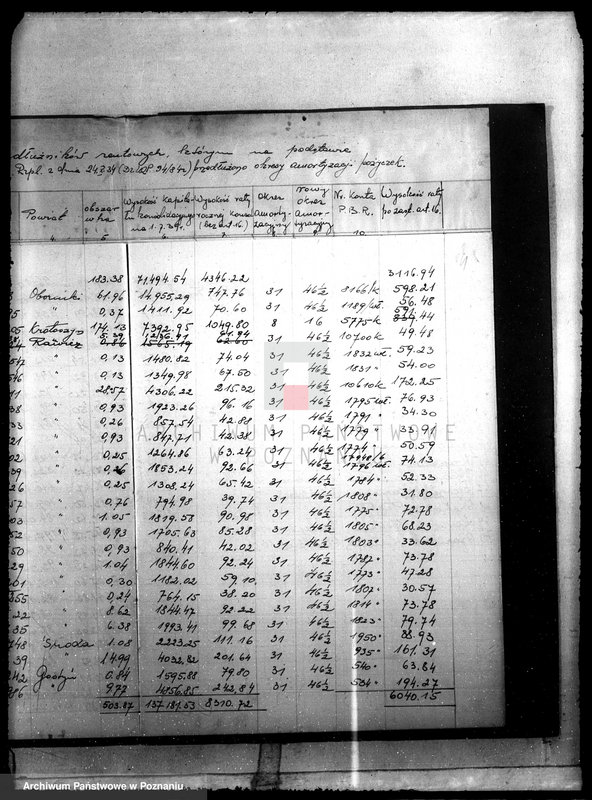 dłużników rentowych, którym na podstawie
Rzpl. z dnia przedłużono okresy amortyzacji pożyczek.
Powiat obszar w ha Wysokość kapitału rentowego na 1.7.39. Wysokość raty rocznej (bez art. 16.) Okres amortyzacyjny Nowy okres amortyzacyjny Nr. konta P.B.R. Wysokość raty po zast. art. 16.
4. 5 6. 7 8 9 10.
183.38 71,494.54 4346.22 3116.94
Oborniki 61.96 14955,29 747.76 31 46½ 8166/k 598.21
" 0,37 1411.92 70.60 31 46½ 56.48
174.13 7392.95 1049.80 8 16 5775/k
31 46½ 10700k 49.48
" 0,13 1480.82 74.04 31 46½ 1832 59.23
" 0,13 1349,98 67.50 31 46½ 1831 " 54.00
" 28.57 4306.22 215.32 31 46½ 10610k 172.25
" 0,93 1923.26 96.16 31 46½ 1795 76.93
" 0,26 857,54 42.88 31 46½ 1791 " 34.30
" 0,93 847,71 42.38 31 46½ 1779 " 33.91
" 0,25 1264,86 63.24 31 46½ 1774 " 50.59
" 0,26 1853,24 92.66 31 46½ 1796 74.13
" 0,25 1308.24 65.42 31 46½ 1784 " 52.33
" 0,76 794,98 39.74 31 46½ 1808 " 31.80
" 1.05 1819.58 90.98 31 46½ 1775 " 72.78
" 0,93 1705.63 85.28 31 46½ 1805 " 68.23
" 0,93 840.41 42.02 31 46½ 1803 " 33.62
" 1.04 1844.60 92.24 31 46½ 1782 " 73.78
" 0,30 1182,02 59,10 31 46½ 1773 " 47.28
" 0,24 764,15 38.20 31 46½ 1807 " 30.57
" 8.62 1844.47 92,22 31 46½ 1814 " 73.78
" 6.38 1993.41 99.68 31 46½ 1823 " 79.74
Środa 1.08 2223.25 111.16 31 46½ 1950 " 88.93
" 14,99 4032,82 201.64 31 46½ 935 " 161.31
Gostyń 0.84 1595,88 79.80 31 46½ 540 " 63.84
" 9,77 4856.85 242,84 31 46½ 534 " 194.27
503.87 137181.53 8310.72 6040.15
ARCHIWUM PAŃSTWOWE
W POZNANIU
Archiwum Państwowe w Poznaniu